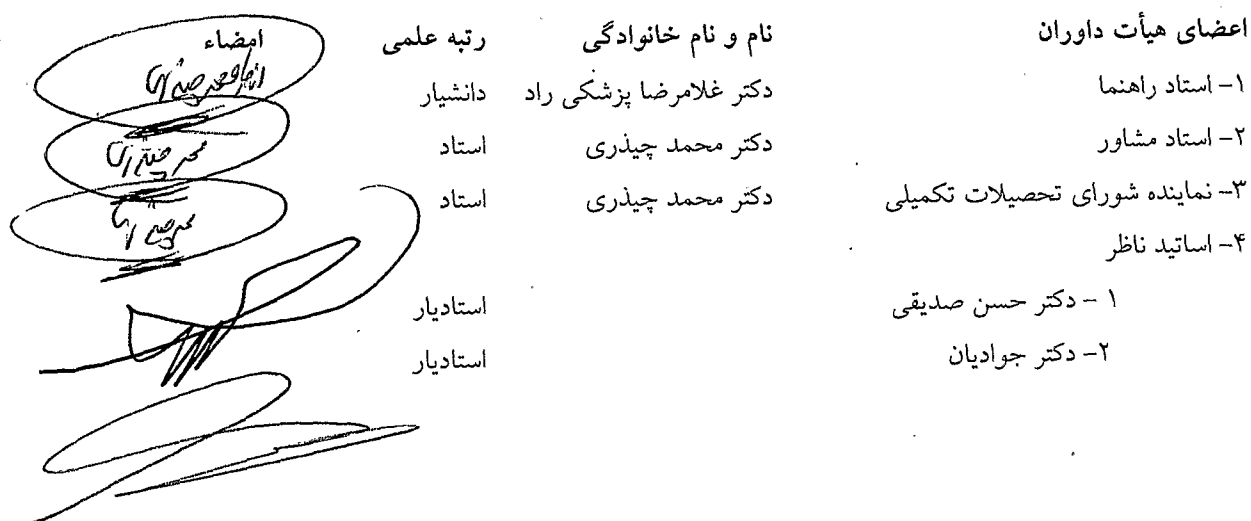 اعضای هیأت داوران نام و نام خانوادگی رتبه علمی امضاء
۱- استاد راهنما دکتر غلامرضا پزشکی راد دانشیار
۲- استاد مشاور دکتر محمد چیذری استاد
۳- نماینده شورای تحصیلات تکمیلی دکتر محمد چیذری استاد
۴- اساتید ناظر
۱ - دکتر حسن صدیقی استادیار
۲- دکتر جوادیان استادیار